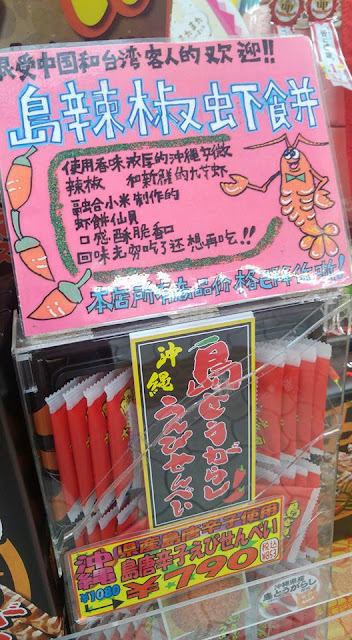 最受中国和台湾客人的欢迎!!
島辣椒虾餅
使用香味浓厚的沖縄
辣椒 和新鲜的
融合小米制作的
虾餅仙貝
口感酥脆香口
回味无穷吃了还想再吃!!
本店所有商品价格
沖縄
島とうがらし
えびせんべい
沖縄
県産島唐辛子使用
島唐辛子えびせんべい
大 790
税込
¥853
沖縄県産
島とうがらし